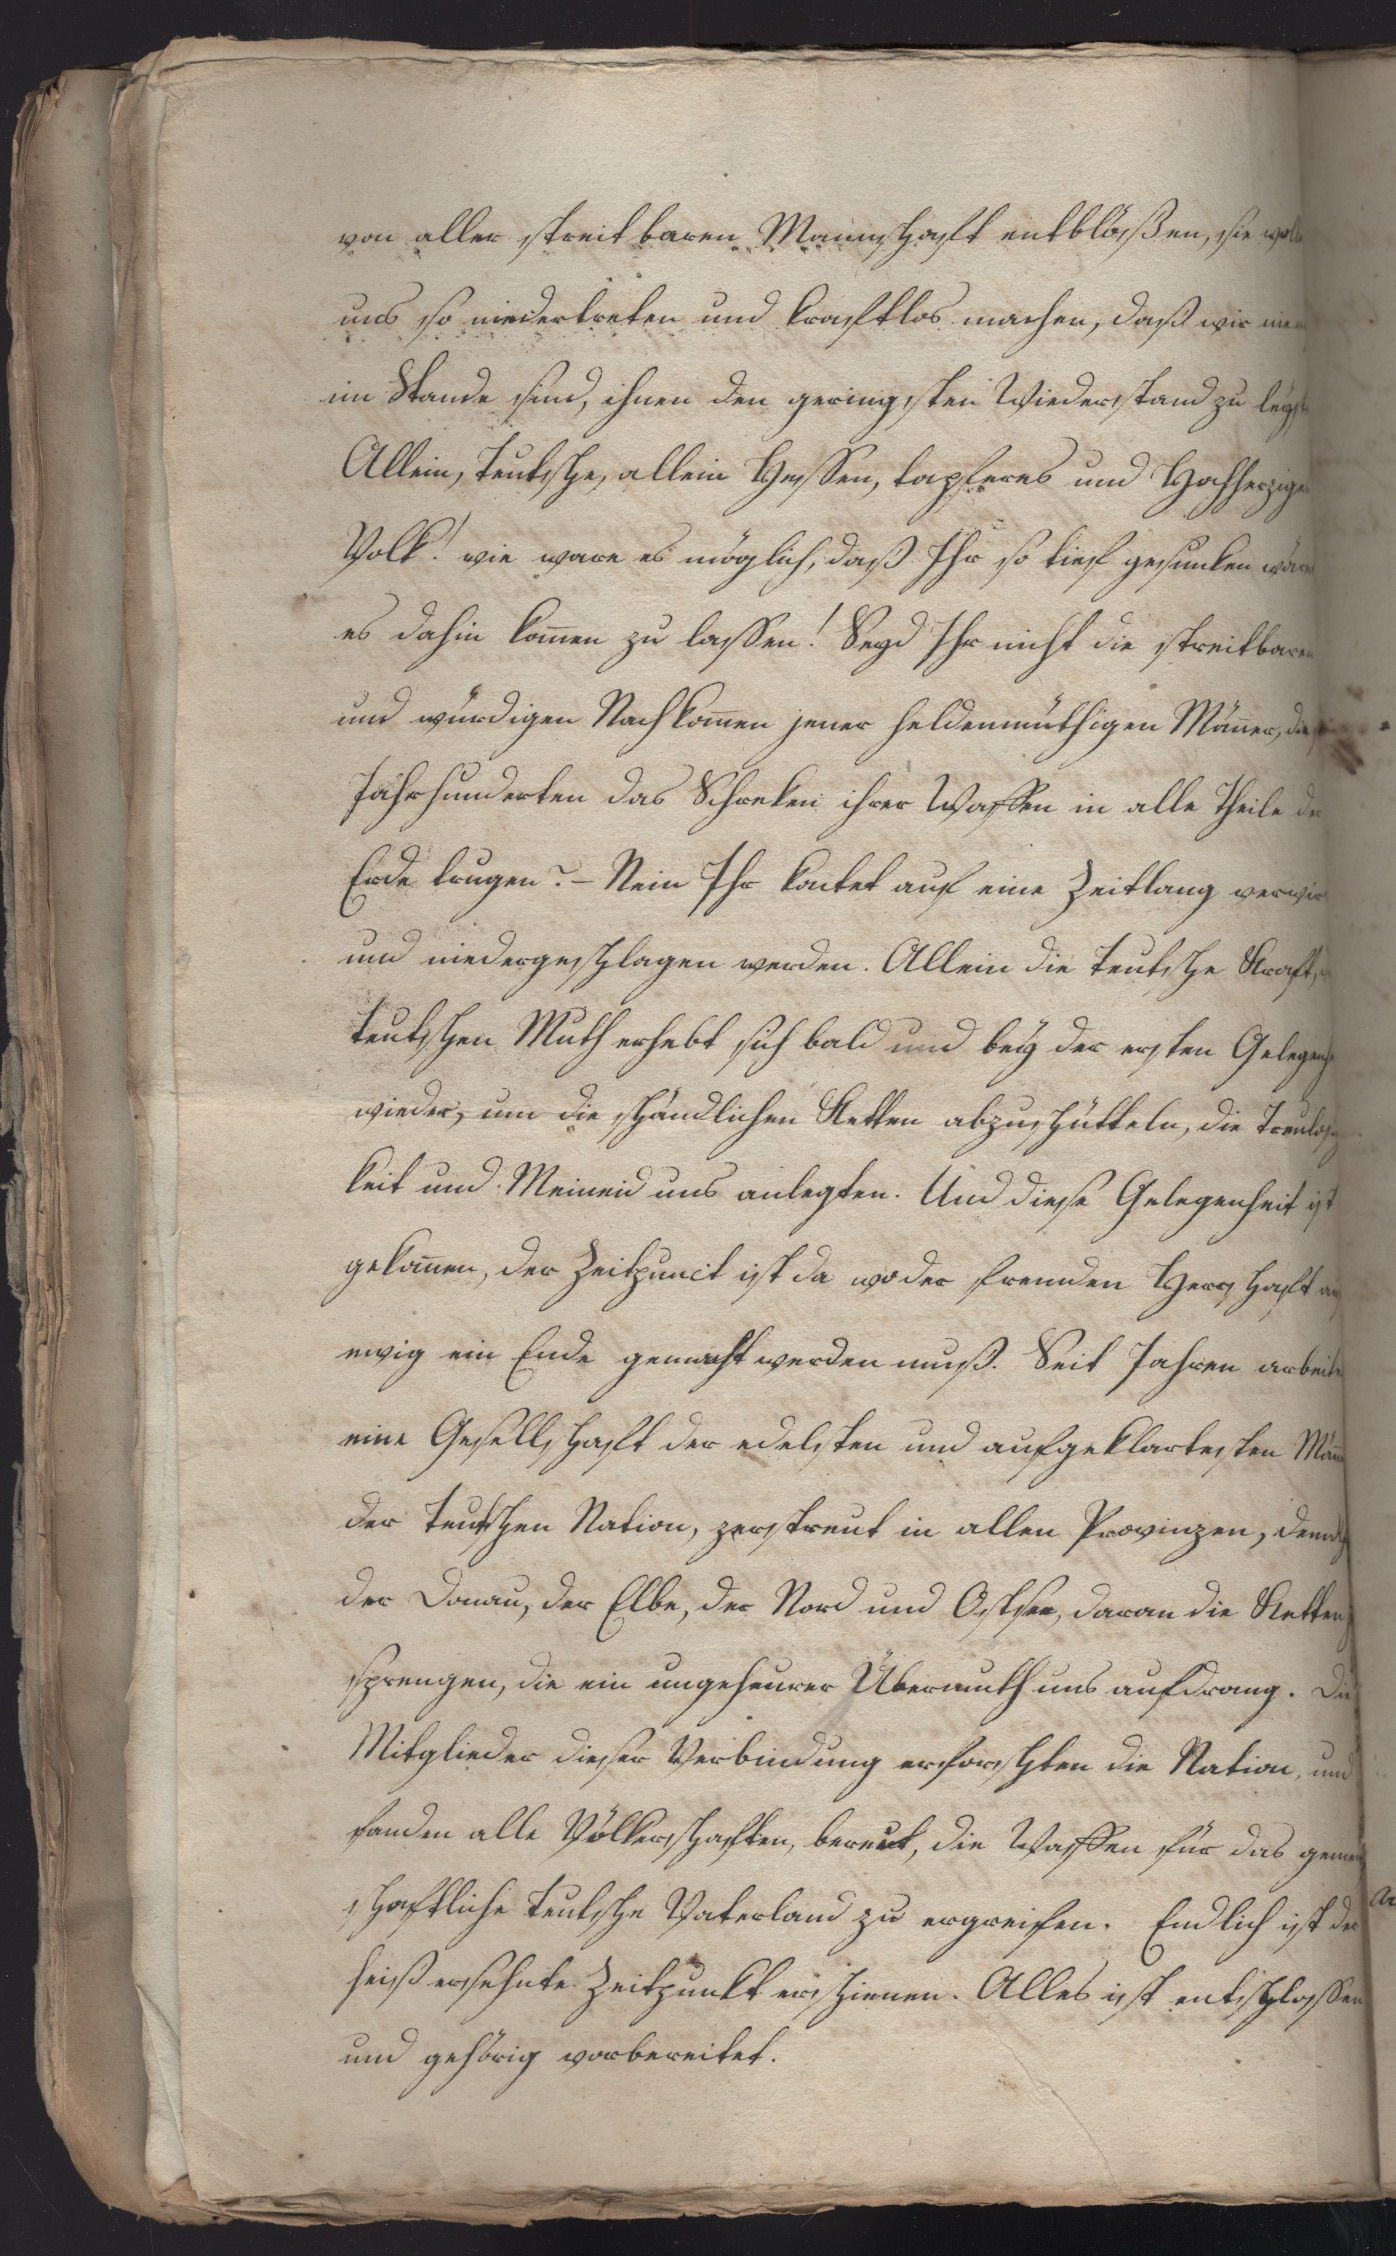 von aller streitbaren Mannschaft entblößen, sie
uns so niedertreten und kraftlos machen, daß wir
im Stande sind, ihnen den geringsten Wiederstand zu
Allein, Teutsche, allein Hessen, tapferes und Hochherzige
Volk! wie ware es möglich, daß Ihr so tief gesunken
es dahin kom̄en zu lassen! Seyd Ihr nicht die streitbaren
und würdigen Nachkom̄en jener heldenmüthigen Män̄er,
Jahrhunderten das Schreken ihrer Waffen in alle Theile der
Erde trugen? – Nein Ihr kontet auf eine Zeitlang
und niedergeschlagen werden. Allein die Teutsche Kraft,
teutschen Muth erhebt sich bald und bey der ersten
wieder, um die schändlichen Ketten abzuschütteln, die
keit und Meineid uns anlegten. Und diese Gelegenheit ist
gekom̄en, der Zeitpunct ist da wo der fremden Herrschaft
ewig ein Ende gemacht werden muß. Seit Jahren
eine Gesellschaft der edelsten und aufgeklartesten
der Teutschen Nation, zerstreut in allen Provinzen,
der Donau, der Elbe, der Nord und Ostsee, daran die Ketten
sprengen, die ein ungeheurer Übermuth uns aufdrang. Die
Mitglieder dieser Verbindung erforschten die Nation, und
fanden alle Völkerschaften, bereit, die Waffen für das
schaftliche Teutsche Vaterland zu ergreifen. Endlich ist der
heiß ersehnte Zeitpunkt erschienen. Alles ist entschlossen
und gehörig vorbereitet.